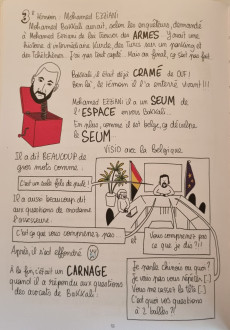 3e témoin : Mohamed EZZIANI
Mohamed BAKKALI aurait, selon les enquêteurs, demandé
à Mohamed Ezziani de lui trouver des ARMES. Y avait une
histoire d'intermédiaire Kurde, des Turcs sur un parking et
des Tchétchènes. J'ai pas tout capté. Mais au final, ça s'est pas fait.
Bakkali, il était déjà CRAMÉ de OUF !
Ben là, le témoin il l'a enterré vivant !!!
Mohamed EZZIANI il a un SEUM de
l'ESPACE envers Bakkali...
En plus, comme il est belge, ça décline
le SEUM...
VISIO avec la Belgique
Il a dit BEAUCOUP de
gros mots comme :
C'est un sale fils de pute !
Il a aussi beaucoup dit
aux questions de madame
l'assesseure :
C'est que vous comprenez pas...
et
Vous comprenez pas
ce que je dis ?!!
Après, il s'est effondré
À la fin, c'était un CARNAGE
quand il a répondu aux questions
des avocats de BAKKALI :
Je parle Chinois ou quoi ?
Je vais pas vous répéter [...]
Vous me cassez la tête [...]
C'est quoi vos questions
à 2 balles ?!